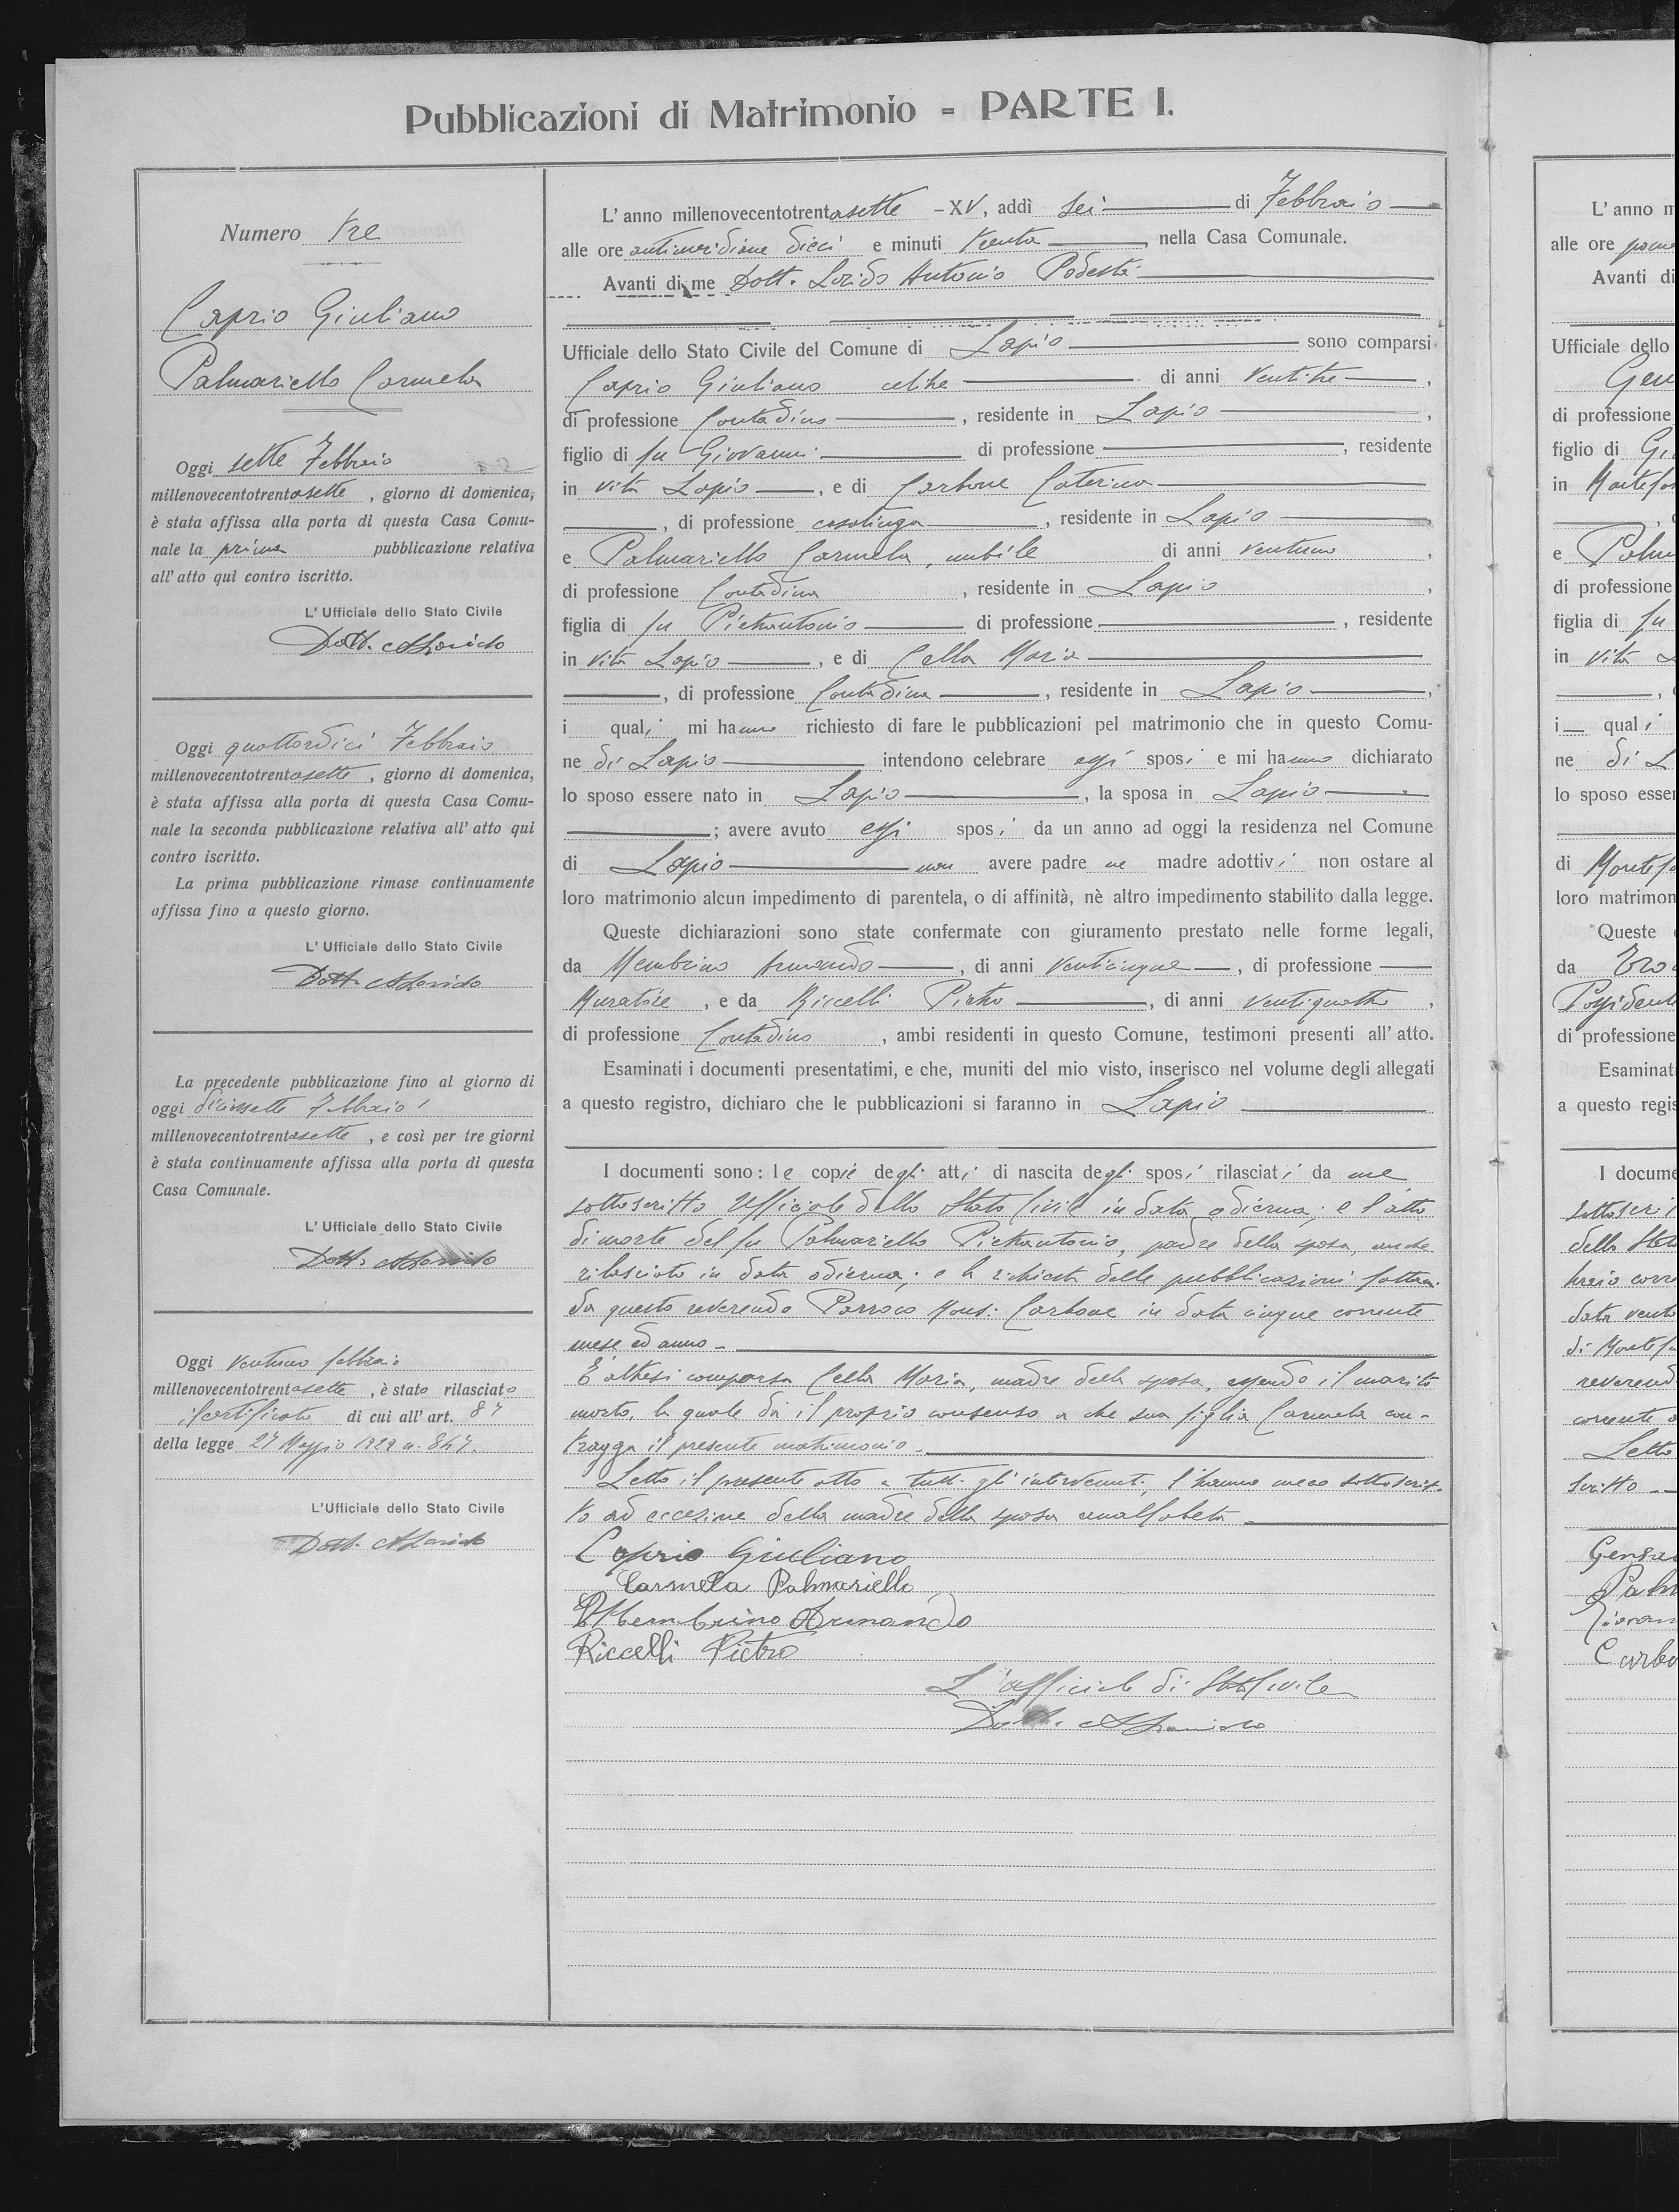 Pubblicazioni di Matrimonio - PARTE I.
Numero tre
Caprio Giuliano
Palmariello Carmela
Oggi sette Febbraio
millenovecentotrentasette, giorno di domenica,
è stata affissa alla porta di questa Casa Comu-
nale la prima pubblicazione relativa
all'atto qui contro iscritto.
L'Ufficiale dello Stato Civile
Dott. A Lorido
Oggi quattordici Febbraio
millenovecentotrentasette, giorno di domenica,
è stata affissa alla porta di questa Casa Comu-
nale la seconda pubblicazione relativa all'atto qui
contro iscritto.
La prima pubblicazione rimase continuamente
affissa fino a questo giorno.
L'Ufficiale dello Stato Civile
Dott. A Lorido
La precedente pubblicazione fino al giorno di
oggi diciassette Febbraio
millenovecentotrentasette, e così per tre giorni
è stata continuamente affissa alla porta di questa
Casa Comunale.
L'Ufficiale dello Stato Civile
Dott. A Lorido
Oggi ventuno febbraio
millenovecentotrentasette, è stato rilasciato
il certificato di cui all'art. 87
della legge 27 Maggio 1929 n. 847.
L'Ufficiale dello Stato Civile
Dott. A Lorido
L'anno millenovecentotrentasette - XV, addì sei di Febbraio
alle ore antimeridiane dieci e minuti trenta, nella Casa Comunale.
Avanti di me Dott. Lorido Antonio Podestà
Ufficiale dello Stato Civile del Comune di Lapio sono comparsi
Caprio Giuliano celibe di anni ventitre,
di professione Contadino, residente in Lapio,
figlio di fu Giovanni di professione, residente
in vita Lapio, e di Carbone Caterina
, di professione casalinga, residente in Lapio
e Palmariello Carmela, nubile di anni ventuno,
di professione Contadina, residente in Lapio,
figlia di fu Pietrantonio di professione, residente
in vita Lapio, e di Cella Maria
, di professione Contadina, residente in Lapio,
i quali mi hanno richiesto di fare le pubblicazioni pel matrimonio che in questo Comu-
ne di Lapio intendono celebrare essi sposi e mi hanno dichiarato
lo sposo essere nato in Lapio, la sposa in Lapio
; avere avuto essi sposi da un anno ad oggi la residenza nel Comune
di Lapio non avere padre ne madre adottivi non ostare al
loro matrimonio alcun impedimento di parentela, o di affinità, nè altro impedimento stabilito dalla legge.
Queste dichiarazioni sono state confermate con giuramento prestato nelle forme legali,
da Membrino Armando, di anni venticinque, di professione
Muratore, e da Riccelli Pietro, di anni ventiquattro,
di professione Contadino, ambi residenti in questo Comune, testimoni presenti all'atto.
Esaminati i documenti presentatimi, e che, muniti del mio visto, inserisco nel volume degli allegati
a questo registro, dichiaro che le pubblicazioni si faranno in Lapio
I documenti sono: le copie degli atti di nascita degli sposi rilasciati da me
sottoscritto Ufficiale dello Stato Civile in data odierna; e l'atto
di morte del fu Palmariello Pietrantonio, padre della sposa, anche
rilasciato in data odierna; e la richiesta delle pubblicazioni fattami
da questo reverendo Parroco Mons. Carbone in data cinque corrente
mese ed anno-
È altresì comparsa Cella Maria, madre della sposa, essendo il marito
morto, la quale dà il proprio consenso a che sua figlia Carmela con-
tragga il presente matrimonio.
Letto il presente atto a tutti gli intervenuti, l'hanno meco sottoscrit-
to ad eccezione della madre della sposa analfabeta.
Caprio Giuliano
Carmela Palmariello
Membrino Armando
Riccelli Pietro
L'ufficiale di Stato Civile
Dott. A Lorido
L'anno m
alle ore pome
Avanti di
Ufficiale dello
Gen
di professione
figlio di Gi
in Montefa
e Palm
di professione
figlia di fu
in vita
i quali
ne di L
lo sposo esser
di Montefa
loro matrimon
Queste
da
Possident
di professione
Esaminat
a questo regis
I docume
sottoscri
dello Sta
braio corre
data vent
di Montefa
reverend
corrente a
Letto
scritto
Palm
Giovan
Carbo